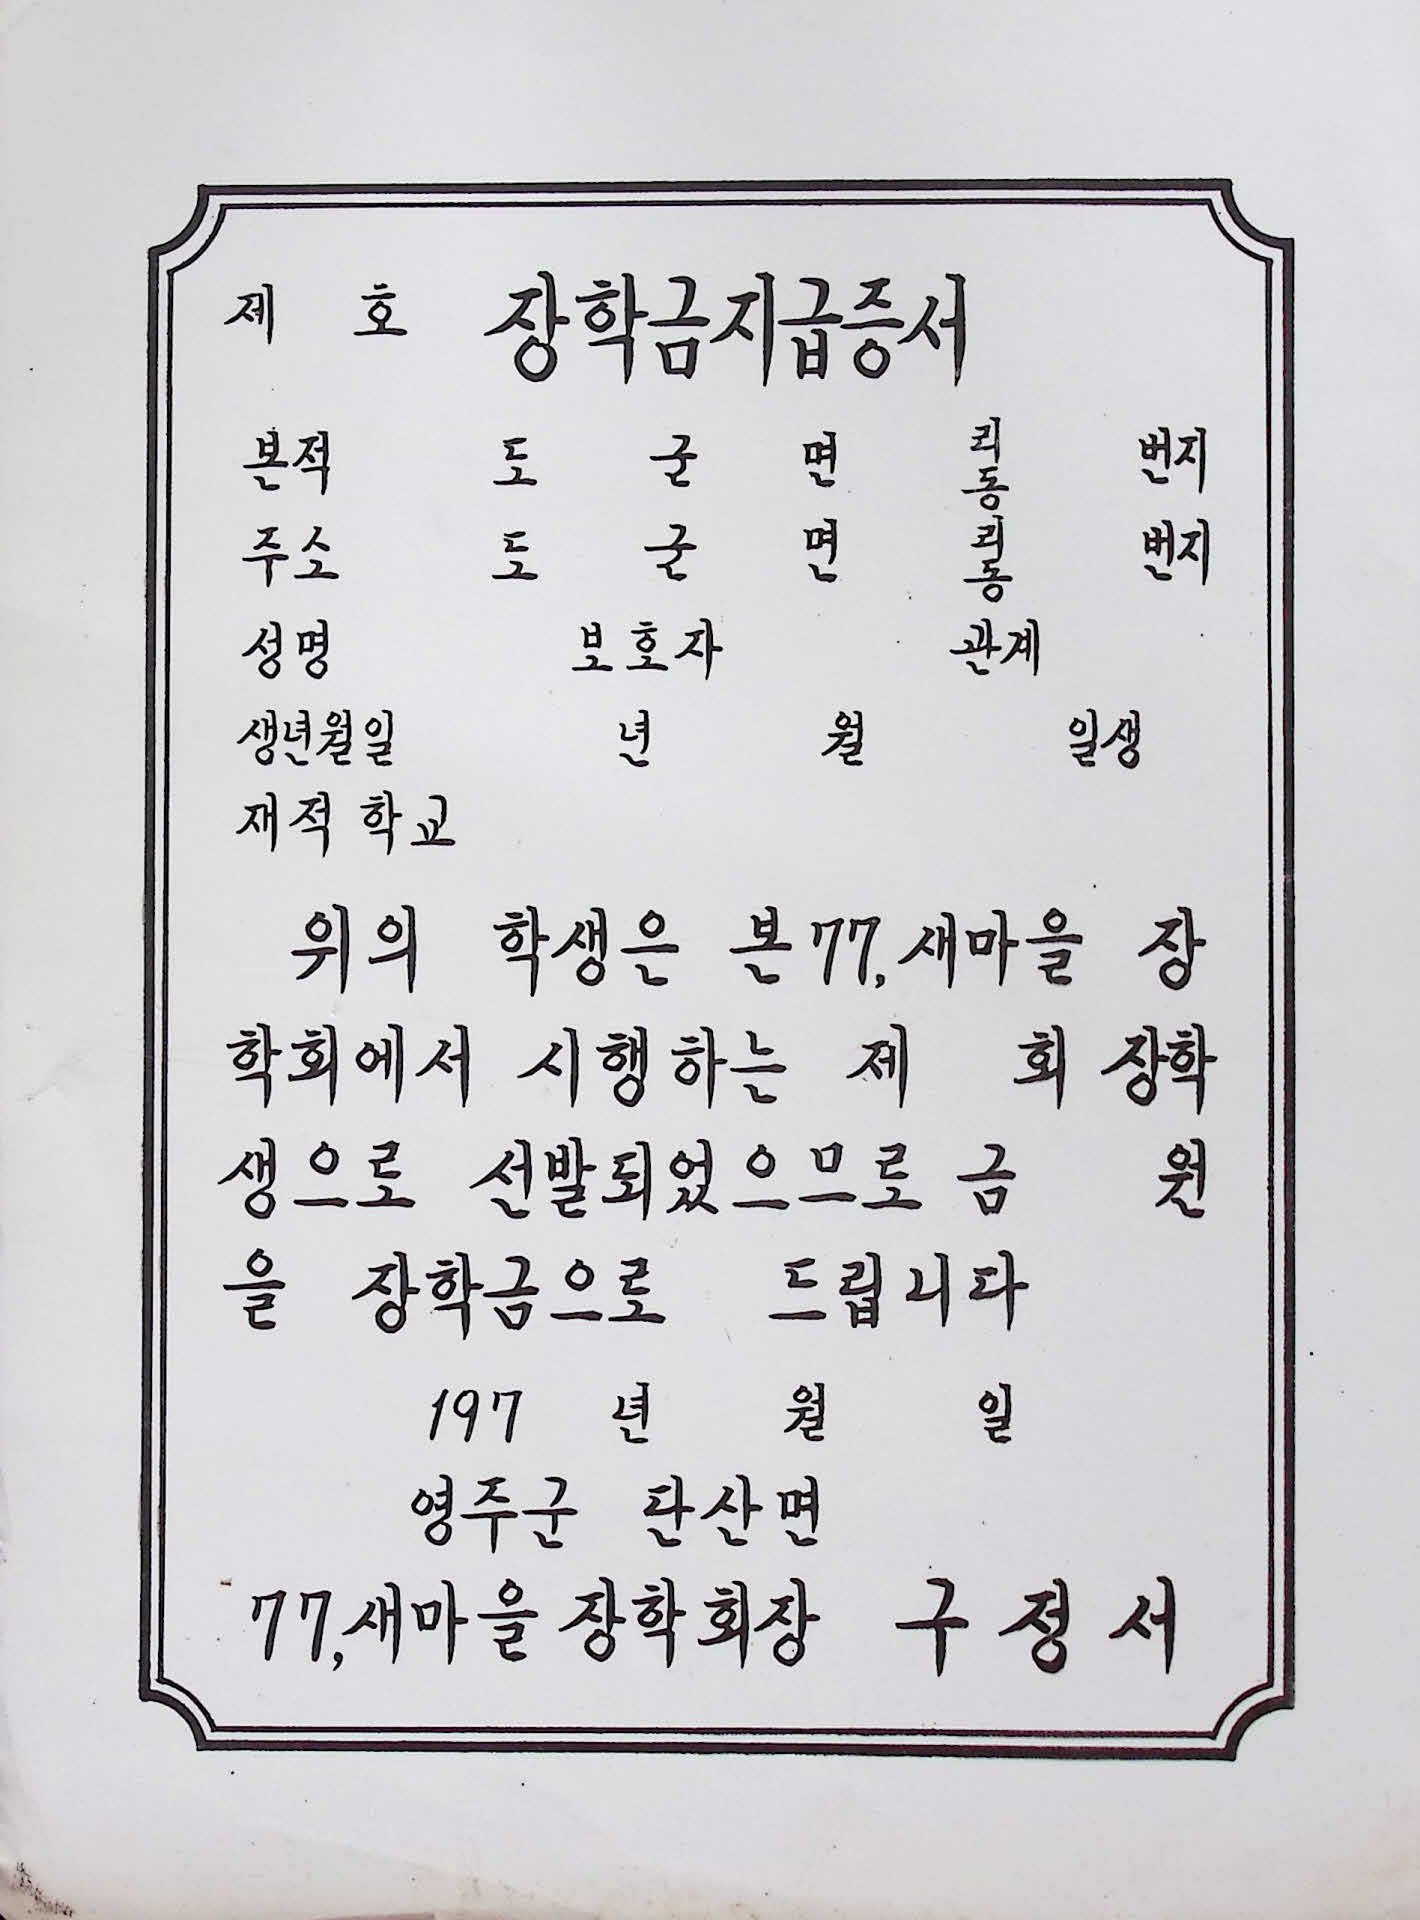 제 호 장학금지급증서
본적 도 군 면 리동 번지
주소 도 군 면 리동 번지
성명 보호자 관계
생년월일 년 월 일생
재적학교
위의 학생은 본 77,새마을 장
학회에서 시행하는 제 회 장학
생으로 선발되었으므로 금 원
을 장학금으로 드립니다
197 년 월 일
영주군 단산면
77,새마을 장학회장 구정서